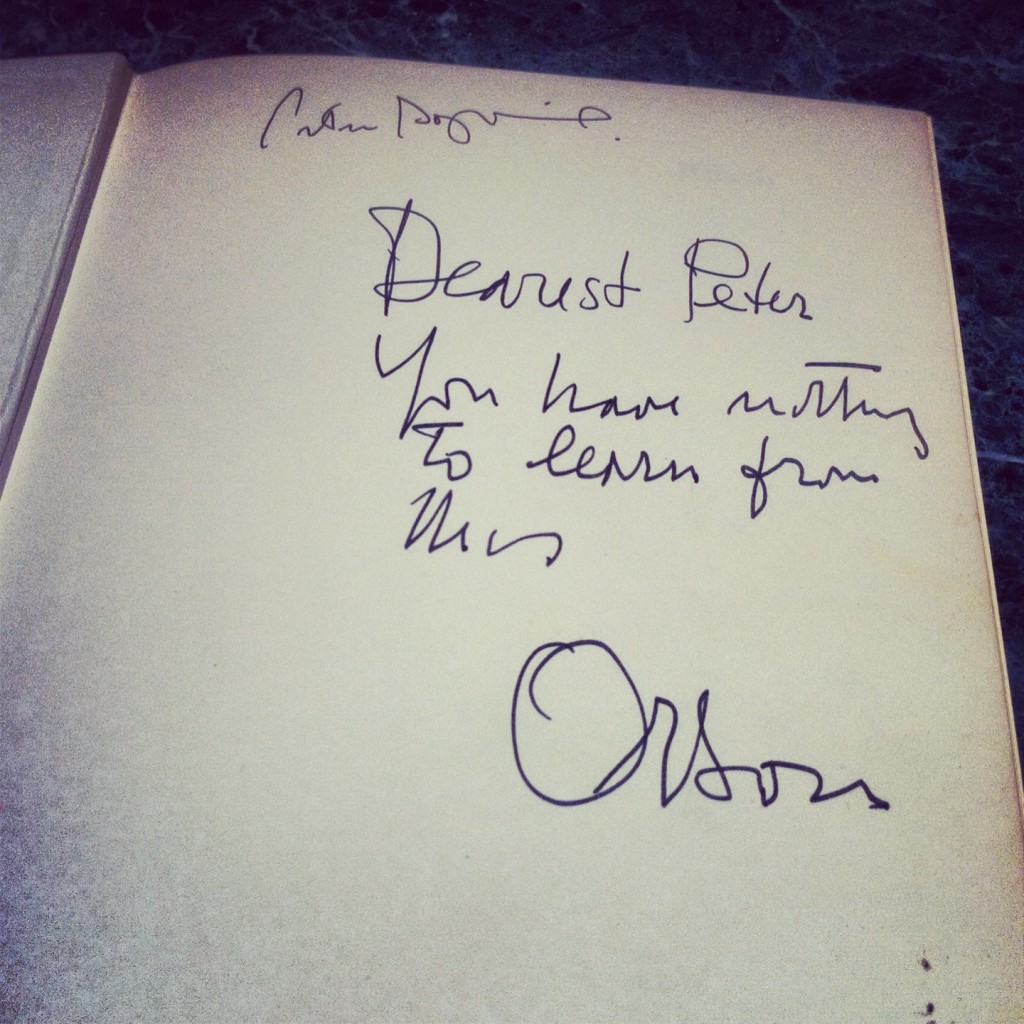 Peter Bogdanovich.
Dearest Peter
You have nothing
to learn from
this
Orson